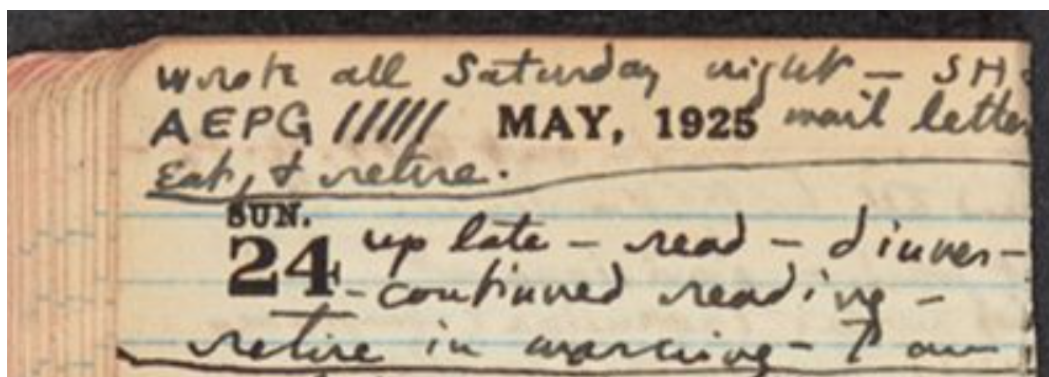 wrote all Saturday night — SH
AEPG ///// MAY, 1925 mail letter
Eat, & retire.
SUN.
24 up late — read — dinner —
continued reading —
retire in morning —